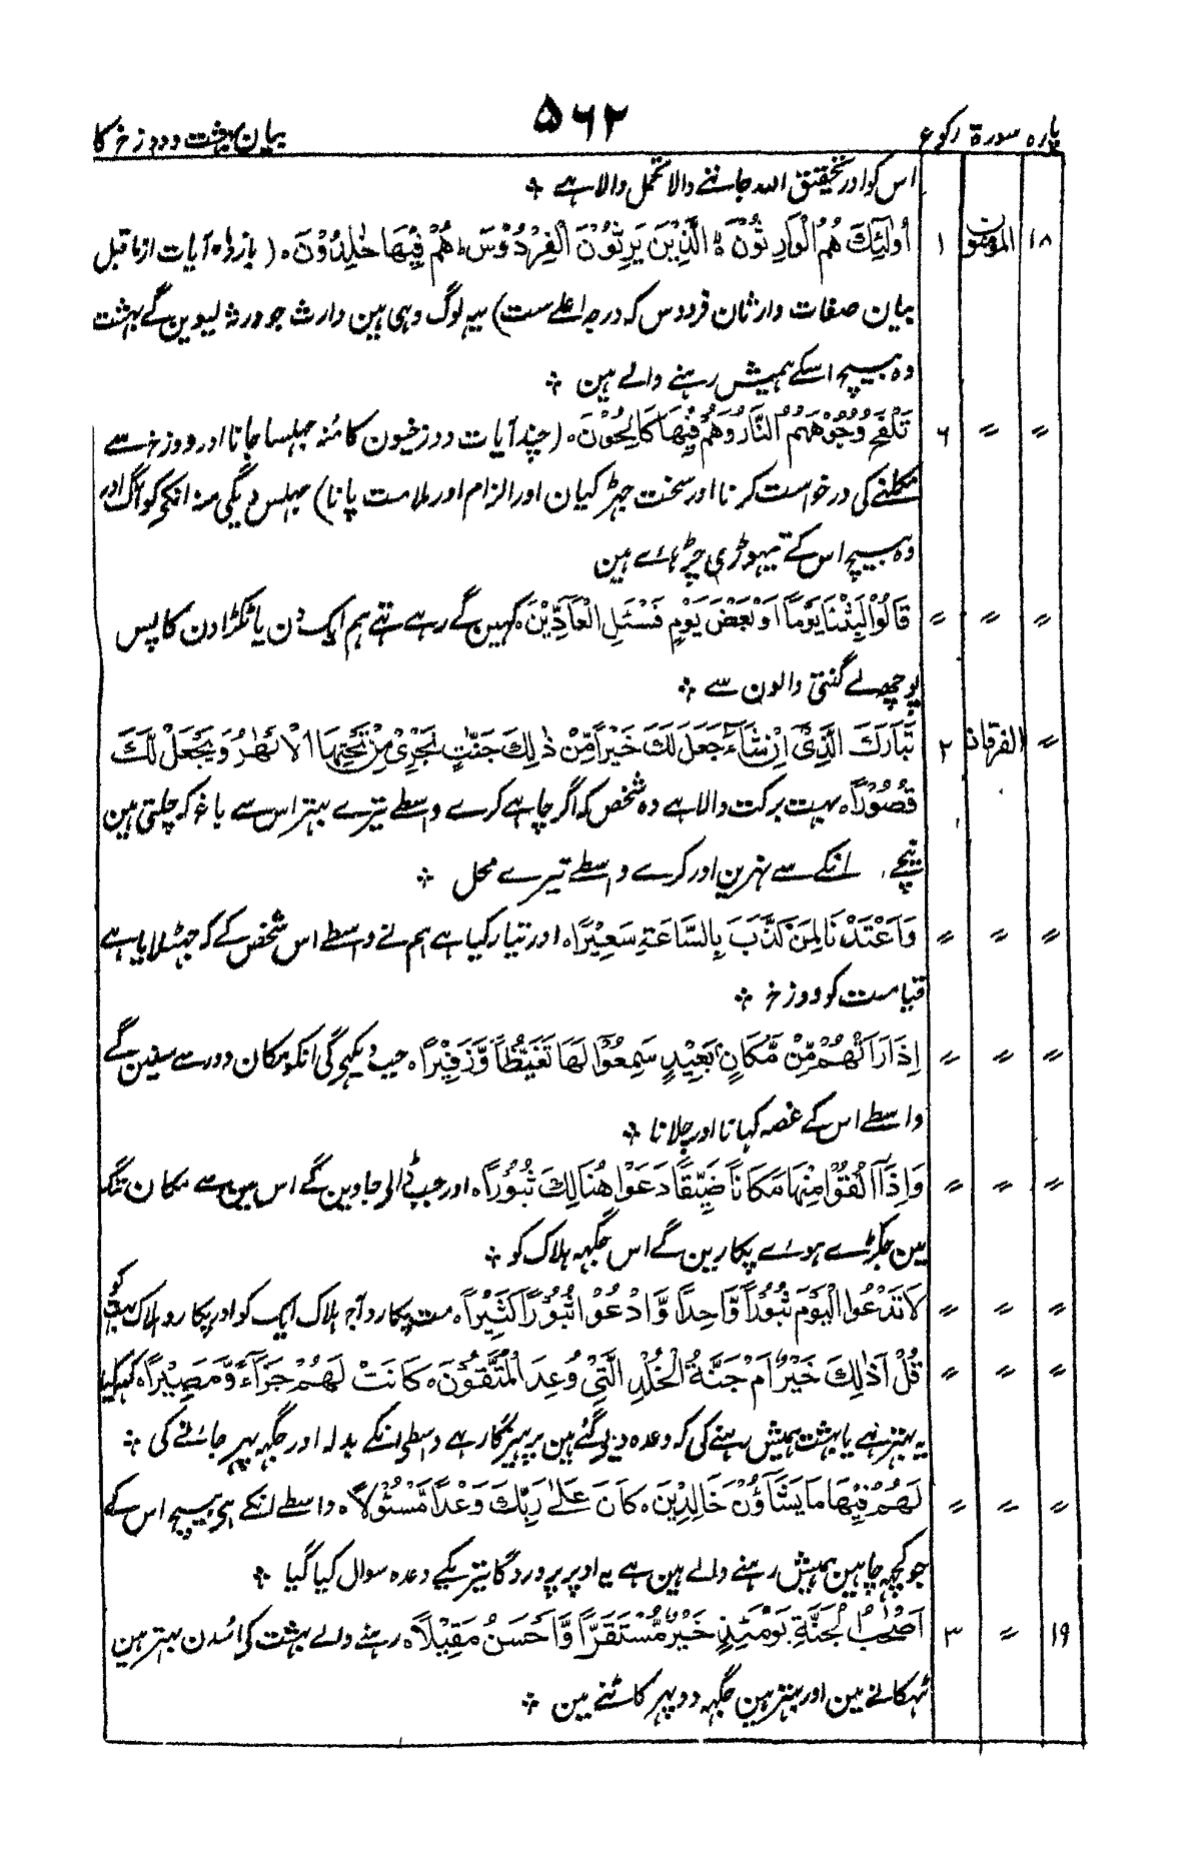 پارہ سورۃ رکوع ۵۶۲ بیان بہشت و دوزخ کا
اس کو اور تحقیق اللہ جاننے والا تحمل والا ہے ÷
۱۸ المؤمنون ۱ اُولٰٓئِكَ هُمُ الْوَارِثُوْنَ ۙ الَّذِيْنَ يَرِثُوْنَ الْفِرْدَوْسَ ؕ هُمْ فِيْهَا خٰلِدُوْنَ ۰ ( یازدہ آیات از ماقبل
بیان صفات وارثان فردوس کہ درجہ اعلے ست) یہ لوگ وہی ہین وارث جو ورثہ لیوین گے بہشت
وہ بیچ اسکے ہمیش رہنے والے ہین ÷
〃 〃 ۶ تَلْفَحُ وُجُوْهَهُمُ النَّارُ وَهُمْ فِيْهَا كَالِحُوْنَ ۰ (چند آیات دوزخیون کا منہ جہلسا جانا اور دوزخ سے
نکلنے کی درخواست کرنا اور سخت جہڑکیان اور الزام اور ملامت پانا) جہلس دیگی منہ انکی کو آگ اور
وہ بیچ اس کے تیہوڑی چڑہائے ہین
〃 〃 〃 قَالُوْا لَبِثْنَا يَوْمًا اَوْ بَعْضَ يَوْمٍ فَسْئَلِ الْعَآدِّيْنَ ۰ کہین گے رہے تہے ہم ایک دن یا ٹکڑا دن کا پس
پوچھ لے گنتی والون سے ÷
〃 الفرقان ۲ تَبَارَكَ الَّذِيْٓ اِنْ شَآءَ جَعَلَ لَكَ خَيْرًا مِّنْ ذٰلِكَ جَنّٰتٍ تَجْرِيْ مِنْ تَحْتِهَا الْاَنْهٰرُ وَيَجْعَلْ لَّكَ
قُصُوْرًا ۰ بہت برکت والا ہے وہ شخص کہ اگر چاہے کرے واسطے تیرے بہتر اس سے باغ کہ چلتی ہین
نیچے انکے سے نہرین اور کرے واسطے تیرے محل ÷
〃 〃 〃 وَاَعْتَدْنَا لِمَنْ كَذَّبَ بِالسَّاعَةِ سَعِيْرًا ۰ اور تیار کیا ہے ہم نے واسطے اس شخص کے کہ جہٹلایا ہے
قیامت کو دوزخ ÷
〃 〃 〃 اِذَا رَاَتْهُمْ مِّنْ مَّكَانٍ بَعِيْدٍ سَمِعُوْا لَهَا تَغَيُّظًا وَّزَفِيْرًا ۰ جب دیکہے گی انکو مکان دور سے سنین گے
واسطے اس کے غصہ کہانا اور چلانا ÷
〃 〃 〃 وَاِذَآ اُلْقُوْا مِنْهَا مَكَانًا ضَيِّقًا دَعَوْا هُنَالِكَ ثُبُوْرًا ۰ اور جب ڈالی جاوین گے اس مین سے مکان تنگ
مین جکڑے ہوئے پکارین گے اس جگہہ ہلاک کو ÷
〃 〃 〃 لَا تَدْعُوا الْيَوْمَ ثُبُوْرًا وَّاحِدًا وَّادْعُوْا ثُبُوْرًا كَثِيْرًا ۰ مت پکارو آج ہلاک ایک کو اور پکارو ہلاک بہت کو
〃 〃 〃 قُلْ اَذٰلِكَ خَيْرٌ اَمْ جَنَّةُ الْخُلْدِ الَّتِيْ وُعِدَ الْمُتَّقُوْنَ ۰ كَانَتْ لَهُمْ جَزَآءً وَّمَصِيْرًا ۰ کہہ کیا
یہ بہتر ہے یا بہشت ہمیش رہنے کی کہ وعدہ دیے گئے ہین پرہیزگار ہے واسطی انکے بدلہ اور جگہہ پہر جانے کی ÷
〃 〃 〃 لَهُمْ فِيْهَا مَا يَشَآؤُنَ خَالِدِيْنَ ۰ كَانَ عَلٰى رَبِّكَ وَعْدًا مَّسْئُوْلًا ۰ واسطے انکے ہی بیچ اس کے
جو کچہہ چاہین ہمیش رہنے والے ہین ہے یہ اوپر پروردگار تیرے کے وعدہ سوال کیا گیا ÷
۱۹ 〃 ۳ اَصْحٰبُ الْجَنَّةِ يَوْمَئِذٍ خَيْرٌ مُّسْتَقَرًّا وَّاَحْسَنُ مَقِيْلًا ۰ رہنے والے بہشت کی اسدن بہتر ہین
ٹہکانے مین اور بہتر ہین جگہہ دوپہر کاٹنے مین ÷